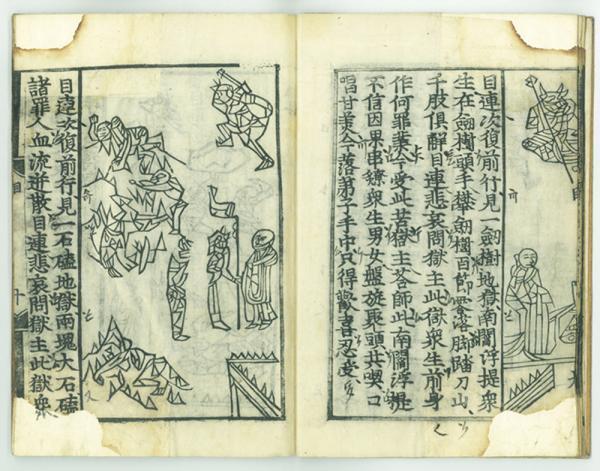 目連次復前行見一劍樹地獄南閻浮提衆
生在劍樹頭手攀劍樹百節零落脚踏刀山
千股俱解目連悲哀問獄主此獄衆生前身
作何罪業今受此苦獄主荅師此南閻浮提
不信因果串鐐衆生男女盤旋聚頭共喫口
唱甘美今落弟子手中只得歡喜忍受
目連次復前行見一石磕地獄兩塊大石磕
諸罪人血流迸散目連悲哀問獄主此獄衆
目
十